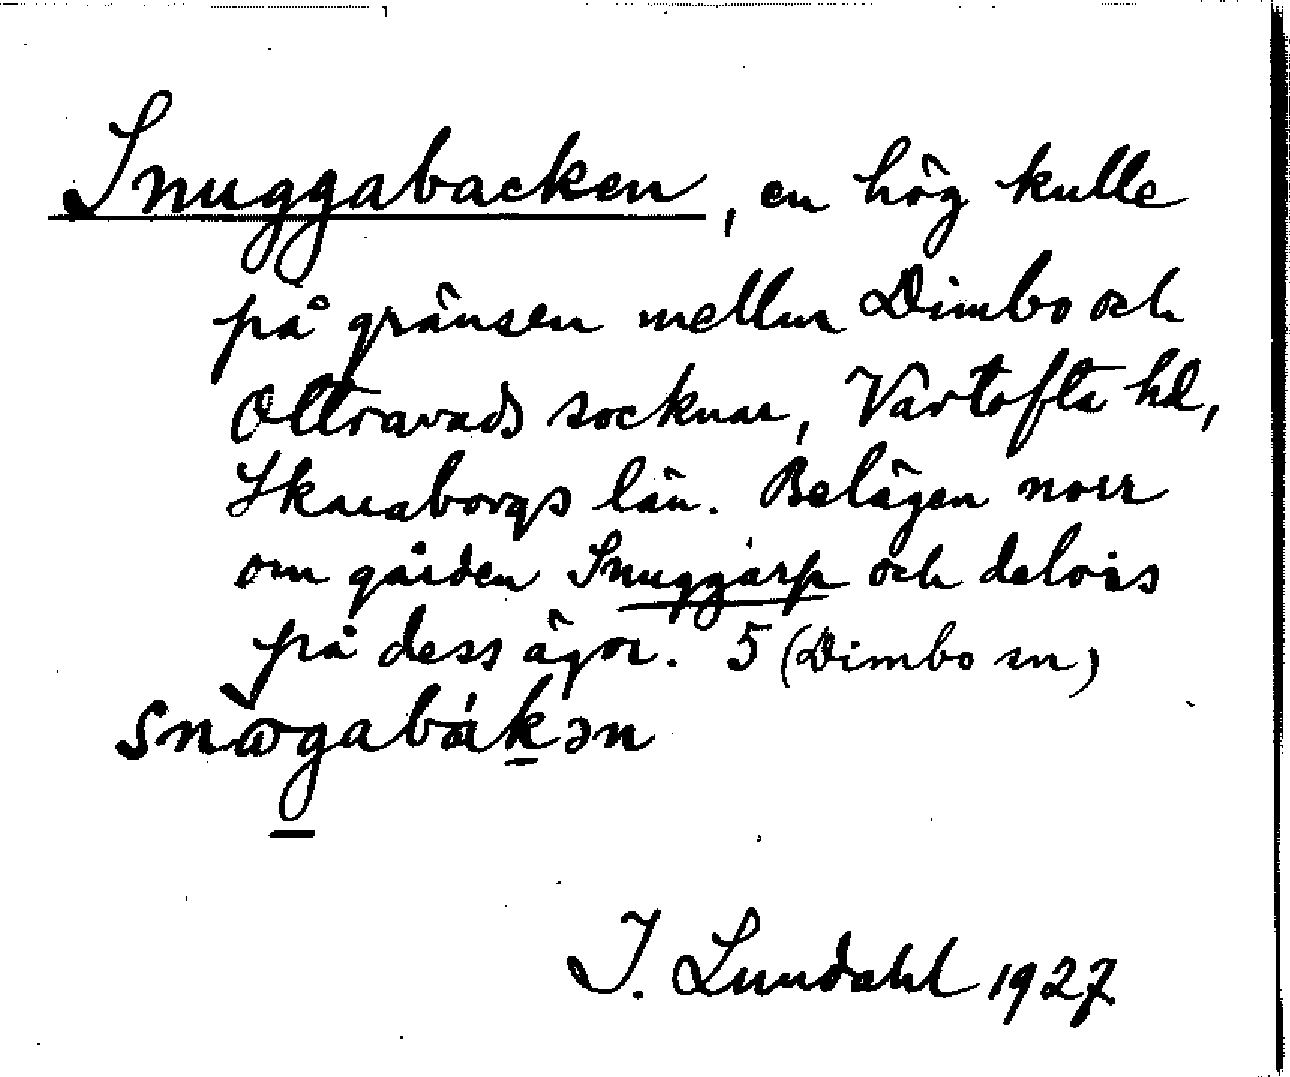 Snuggabacken, en hög kulle
på gränsen mellan Dimbo och
Ottravads socknar, Vartofta hd,
Skaraborgs län. Belägen norr
om gården Snuggarp och delvis
på dess ägor. 5 (Dimbo sn)
I. Lundahl 1927